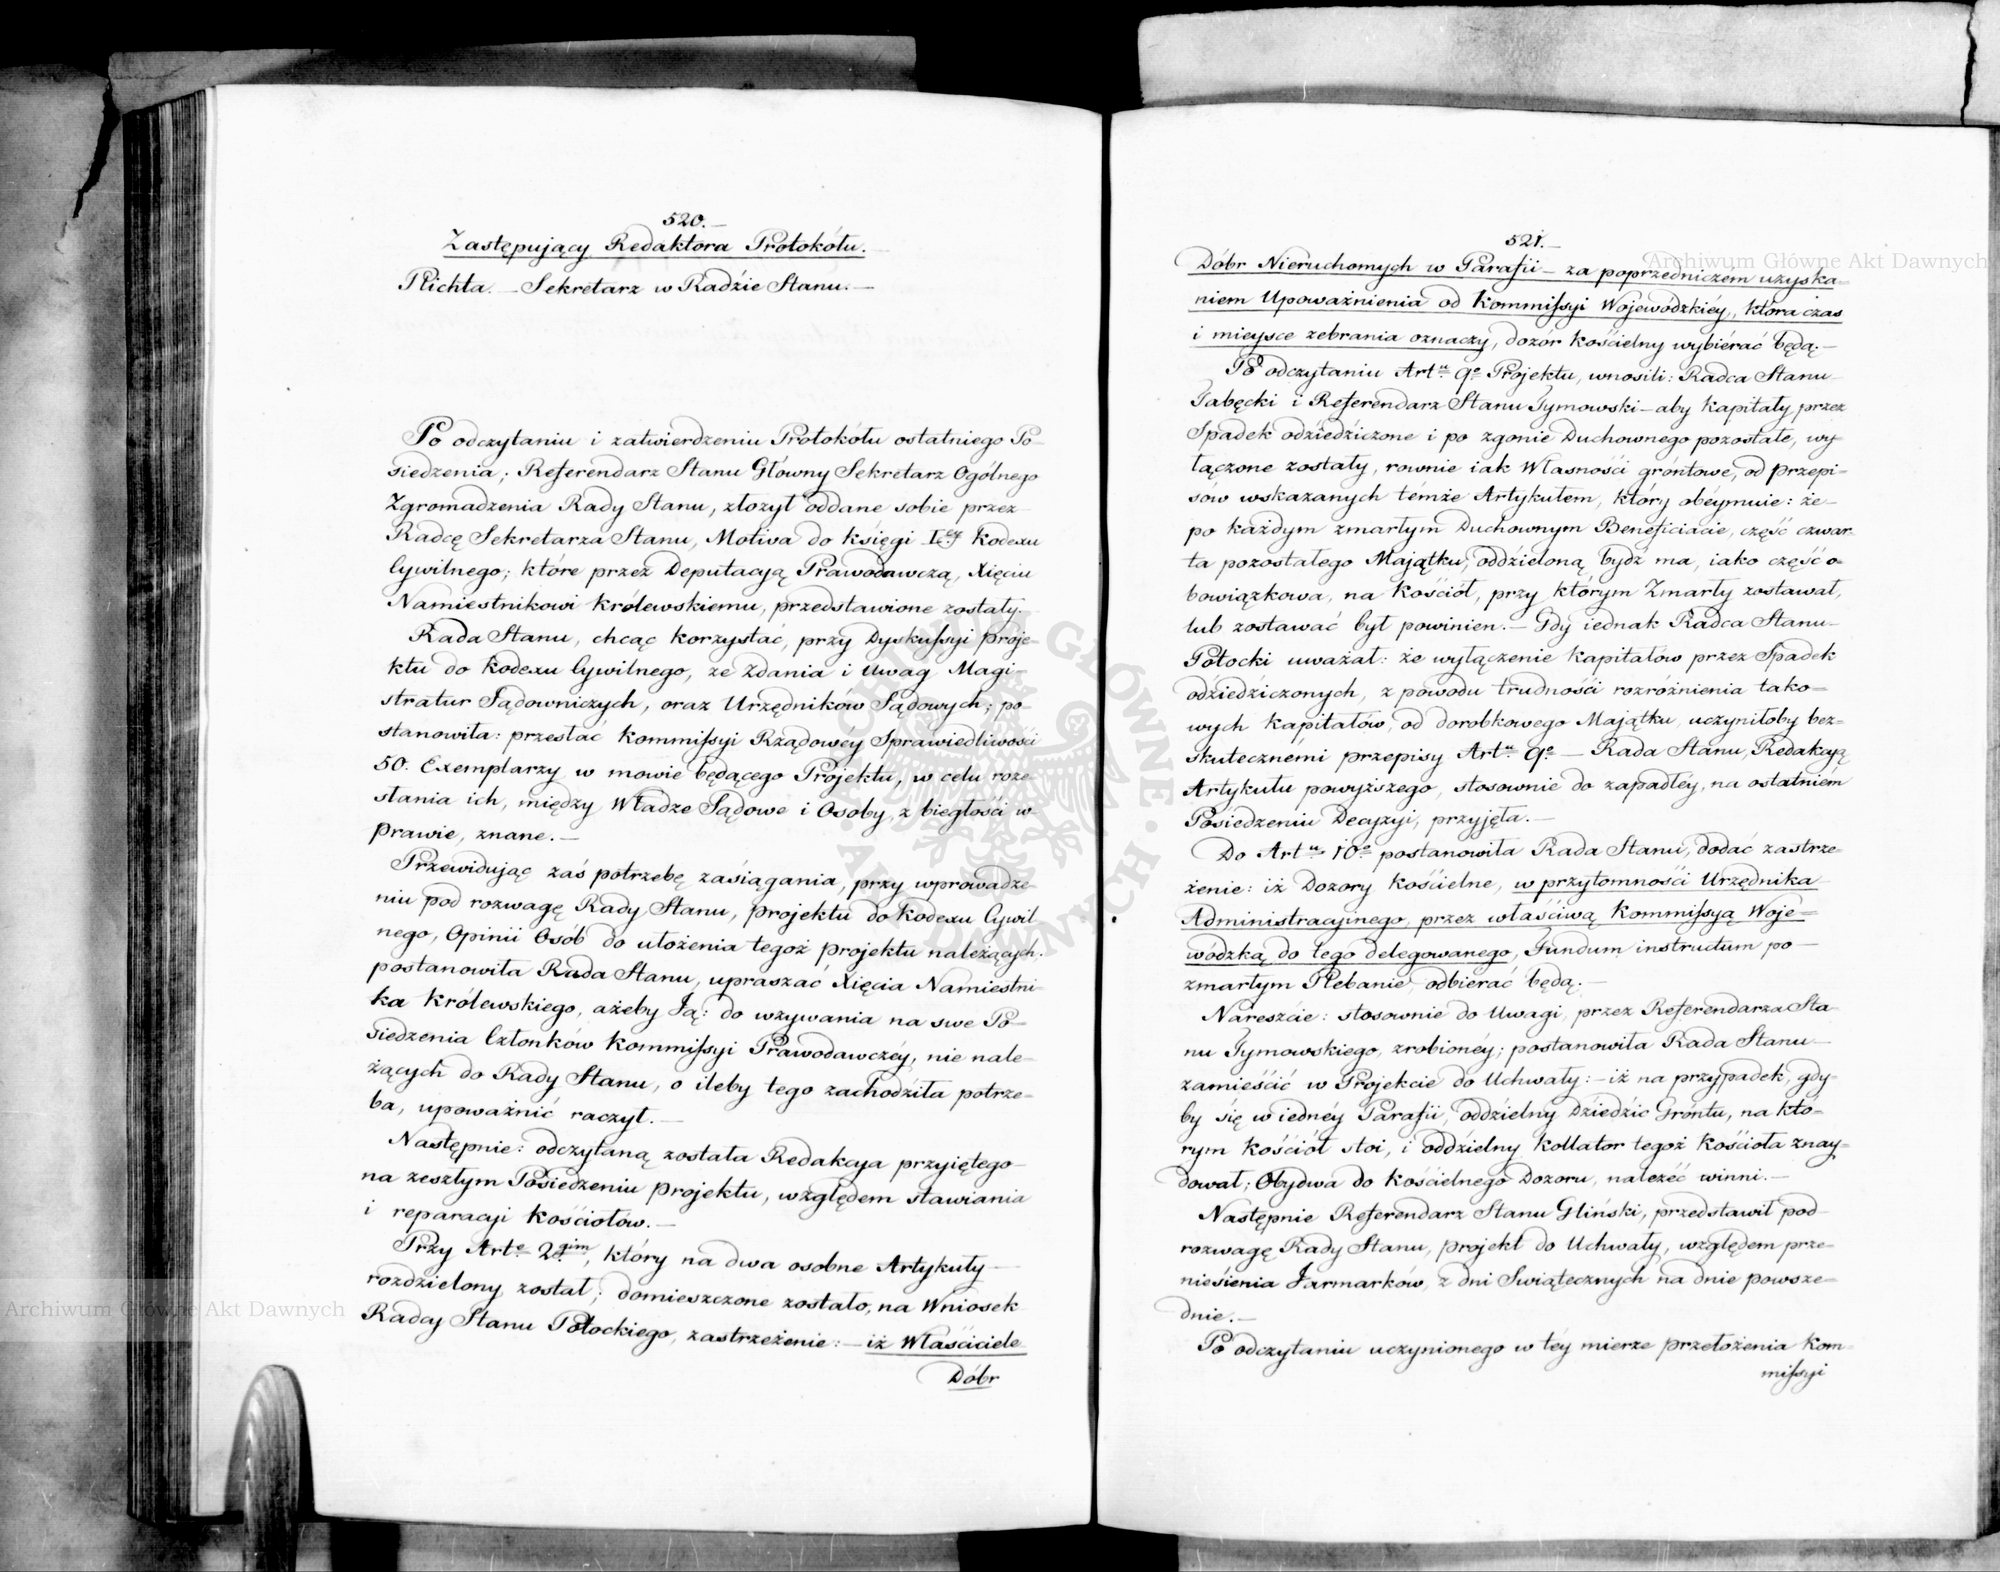 520.—
Zastępujący Redaktora Protokołu.—
Plichta. — Sekretarz w Radzie Stanu. —
Po odczytaniu i zatwierdzeniu Protokołu ostatniego Po-
siedzenia; Referendarz Stanu Główny Sekretarz Ogólnego
Zgromadzenia Rady Stanu, złożył oddane sobie przez
Radcę Sekretarza Stanu, Motiwa do księgi I:ey Kodexu
Cywilnego; które przez Deputacyą Prawodawczą, Xięciu
Namiestnikowi Królewskiemu, przedstawione zostały.
Rada Stanu, chcąc korzystać, przy Dyskussyi proje-
ktu do Kodexu Cywilnego, ze Zdania i Uwag Magi-
stratur Sądowniczych, oraz Urzędników Sądowych; po-
stanowiła: przesłać Kommissyi Rządowey Sprawiedliwości
50. Exemplarzy w mowie będącego Projektu, w celu roze-
słania ich, między Władze Sądowé i Osoby, z biegłości w
prawie, znane. —
Przewidując zaś potrzebę zasiągania, przy wprowadze-
niu pod rozwagę Rady Stanu, projektu do Kodexu Cywil
nego, Opinii Osób do ułożenia tegoż projektu należących.
postanowiła Rada Stanu, upraszać Xięcia Namiestni-
ka Królewskiego, ażeby Ją: do wzywania na swe Po-
siedzenia Członków Kommissyi Prawodawczéy, nie nale-
żących do Rady Stanu, o ileby tego zachodziła potrze-
ba, upoważnić raczył. —
Następnie: odczytaną została Redakcya przyiętego
na zeszłym Posiedzeniu projektu, względem stawiania
i reparacyi Kościołów. —
Przy Art:e 2gim, który na dwa osobne Artykuły
rozdzielony został; domieszczone zostało, na Wniosek
Radcy Stanu Potockiego, zastrzeżenie: — iż Właściciele
Dóbr
521.—
Dóbr Nieruchomych w Parafii — za poprzedniczém uzyska-
niem Upoważnienia od Kommissyi Wojewódzkiéy, która czas
i mieysce zebrania oznaczy, dozór kościelny wybiérać będą. —
Po odczytaniu Art:u 9:o Projektu, wnosili: Radca Stanu
Gabęcki i Referendarz Stanu Tymowski — aby kapitały przez
Spadek odziedziczone i po zgonie Duchownego pozostałe, wy-
łączone zostały, rownie iak Własności gróntowe, od przepi-
sów wskazanych témże Artykułem, który obéymuie: że-
po każdym zmarłym Duchownym Beneficiacie, część czwar-
ta pozostałego Majątku, oddzieloną bydź ma, iako część o-
bowiązkowa, na Kościół, przy którym Zmarły zostawał,
lub zostawać był powinien. — Gdy iednak Radca Stanu
Potocki uważał: że wyłączenie kapitałów przez Spadek
odziedziczonych, z powodu trudności rozróżnienia tako-
wych kapitałów, od dorobkowego Majątku, uczyniłoby bez-
skutecznémi przepisy Art:u 9:o — Rada Stanu, Redakcyą
Artykułu powyższego, stosownie do zapadłéy, na ostatniem
Posiedzeniu Decyzyi, przyjęła. —
Do Art:u 10:o postanowiła Rada Stanu, dodać zastrze-
żenie: iż Dozory kościelne, w przytomności Urzędnika
Administracyjnego, przez właściwą Kommissyą Woje-
wódzką do tego delegowanego, Fundum instructum po
zmarłym Plebanie odbierać będą. —
Nareszcie: stosownie do Uwagi, przez Referendarza Sta-
nu Tymowskiego, zrobionéy; postanowiła Rada Stanu
zamieścić w Projekcie do Uchwały: — iż na przypadek, gdy-
by się w iednéy Parafii, oddzielny Dziedzic Gróntu, na któ-
rym Kościół stoi, i oddzielny Kollator tegoż Kościoła znay-
dował; Obydwa do kościelnego Dozoru, należéć winni. —
Następnie Referendarz Stanu Gliński, przedstawił pod
rozwagę Rady Stanu, projekt do Uchwały, względem prze-
niesienia Jarmarków, z dni Swiątecznych na dnie powsze-
dnie. —
Po odczytaniu uczynionego w téy mierze przełożenia Kom-
missyi
Archiwum Główne Akt Dawnych
Archiwum Główne Akt Dawnych
ARCHIWUM GŁÓWNE AKT DAWNYCH